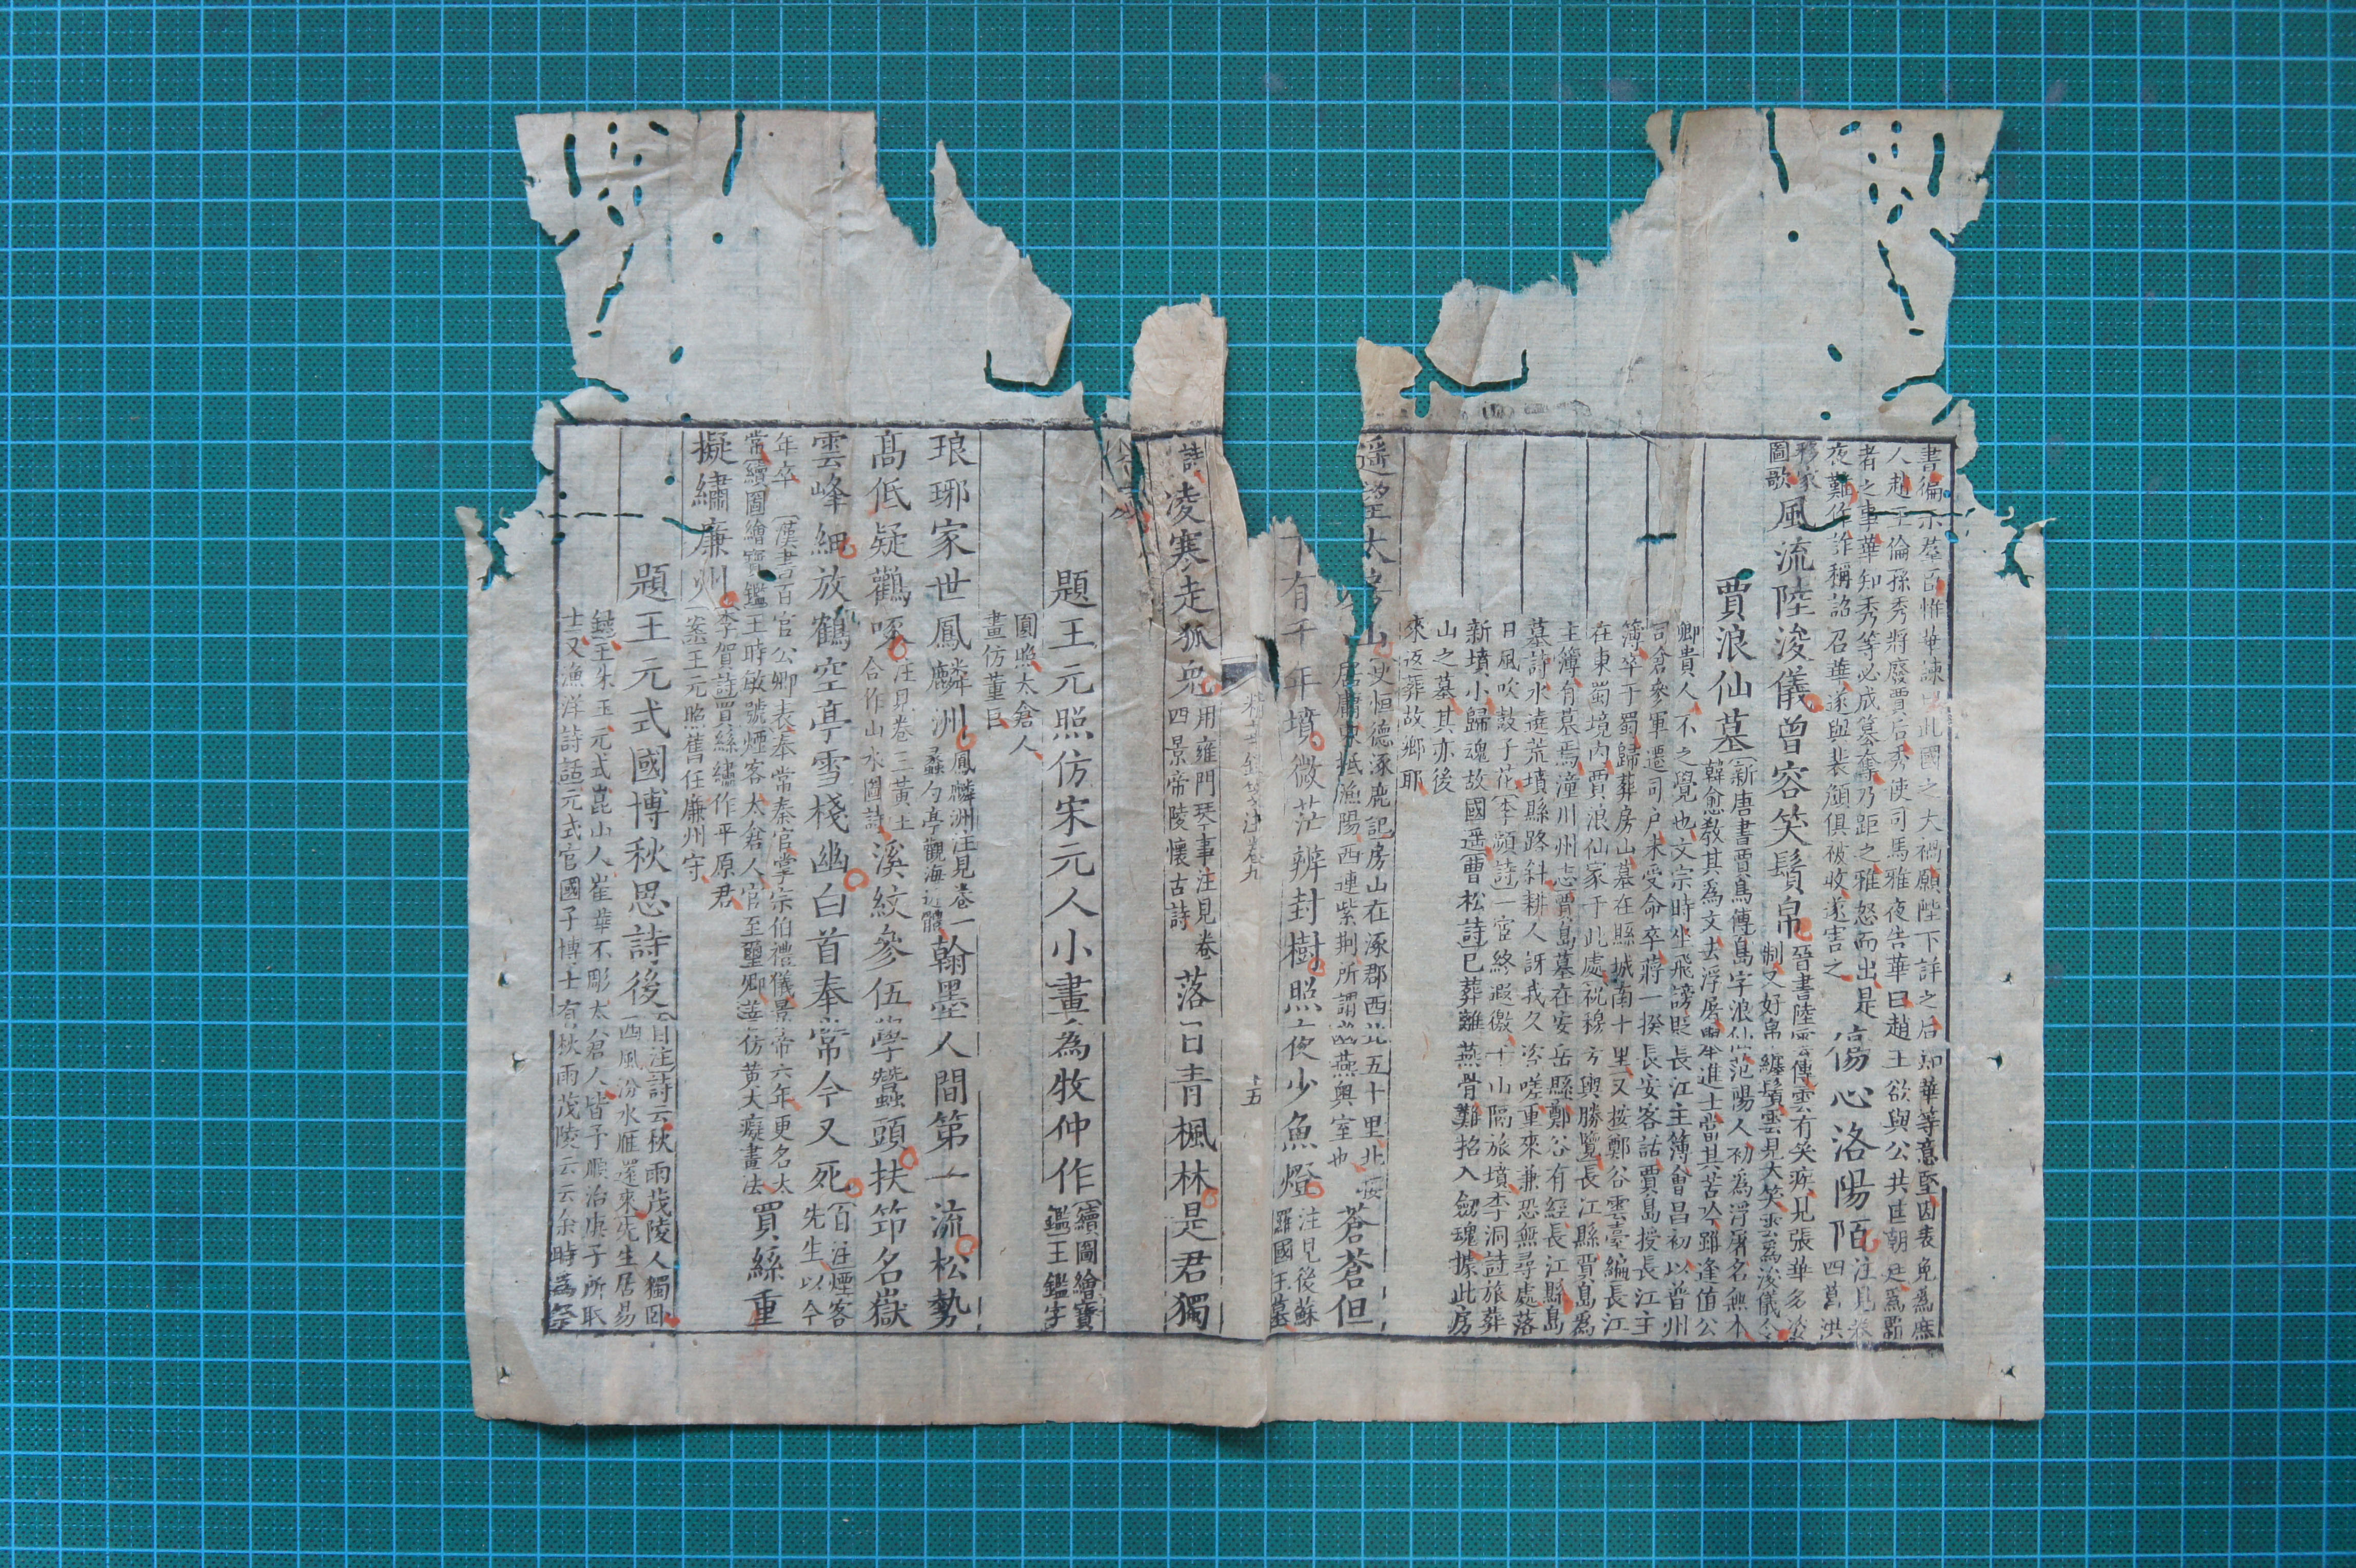 書徧示羣臣惟華諫曰此國之大禍願陛下詳之后知華等意堅因表免爲庶
人趙王倫孫秀將廢賈后秀使司馬雅夜告華曰趙王欲與公共匡朝廷爲霸
者之事華知秀等必成篡奪乃距之雅怒而出是
夜難作詐稱詔召華遂與裴頠俱被收遂害之
傷心洛陽陌
注見卷
四葛洪
移家
圖歌
風流陸浚儀曾容笑鬚帛
晉書陸雲傳雲有笑疾見張華多姿
制又好帛纏鬚雲見大笑雲爲浚儀令
賈浪仙墓
新唐書賈島傳島字浪仙范陽人初爲浮屠名無本
韓愈教其爲文去浮屠舉進士當其苦吟雖逢值公
卿貴人不之覺也文宗時坐飛謗貶長江主簿會昌初以普州
司倉參軍遷司戶未受命卒蔣一揆長安客話賈島授長江主
簿卒于蜀歸葬房山墓在縣城南十里又按鄭谷雲臺編長江
在東蜀境內賈浪仙家于此處祝穆方輿勝覽長江縣賈島爲
主簿有墓焉潼川州志賈島墓在安岳縣鄭谷有經長江縣島
墓詩水遶荒墳縣路斜耕人訝我久咨嗟重來兼恐無尋處落
日風吹鼓子花李頻詩一宦終遐徼千山隔旅墳李洞詩旅葬
新墳小歸魂故國遥曹松詩已葬離燕骨難招入劒魂據此房
山之墓其亦後
來返葬故鄉耶
遥望太房山
史恒德涿鹿記房山在涿郡西北五十里北接
居庸東抵漁陽西連紫荆所謂幽燕奥室也
蒼蒼但
有千年墳微茫辨封樹照夜少魚燈
注見後蘇
羅國王墓
精華錄箋注卷九
十五
詩
凌寒走狐兔
用雍門琴事注見卷
四景帝陵懷古詩
落日青楓林是君獨
題王元照仿宋元人小畫爲牧仲作
續圖繪寶
鑑王鑑字
圓照太倉人
畫仿董巨
琅琊家世鳳麟洲
鳳麟洲注見卷一
蠡勺亭觀海近體
翰墨人間第一流松勢
高低疑鸛啄
注見卷三黃主
合作山水圖詩
溪紋參伍學蠶頭扶笻名嶽
雲峰細放鶴空亭雪棧幽白首奉常今又死
自注煙客
先生以今
年卒
漢書百官公卿表奉常秦官掌宗伯禮儀景帝六年更名太
常續圖繪寶鑑王時敏號煙客太倉人官至璽卿善仿黃大癡畫法
買絲重
擬繡廉州
李賀詩買絲繡作平原君
案王元照舊任廉州守
題王元式國博秋思詩後
自注詩云秋雨茂陵人獨臥
西風汾水雁還來先生居易
錄王朱玉元式崑山人崔華不彫太倉人皆予順治庚子所取
士又漁洋詩話元式官國子博士有秋雨茂陵云云余時爲祭